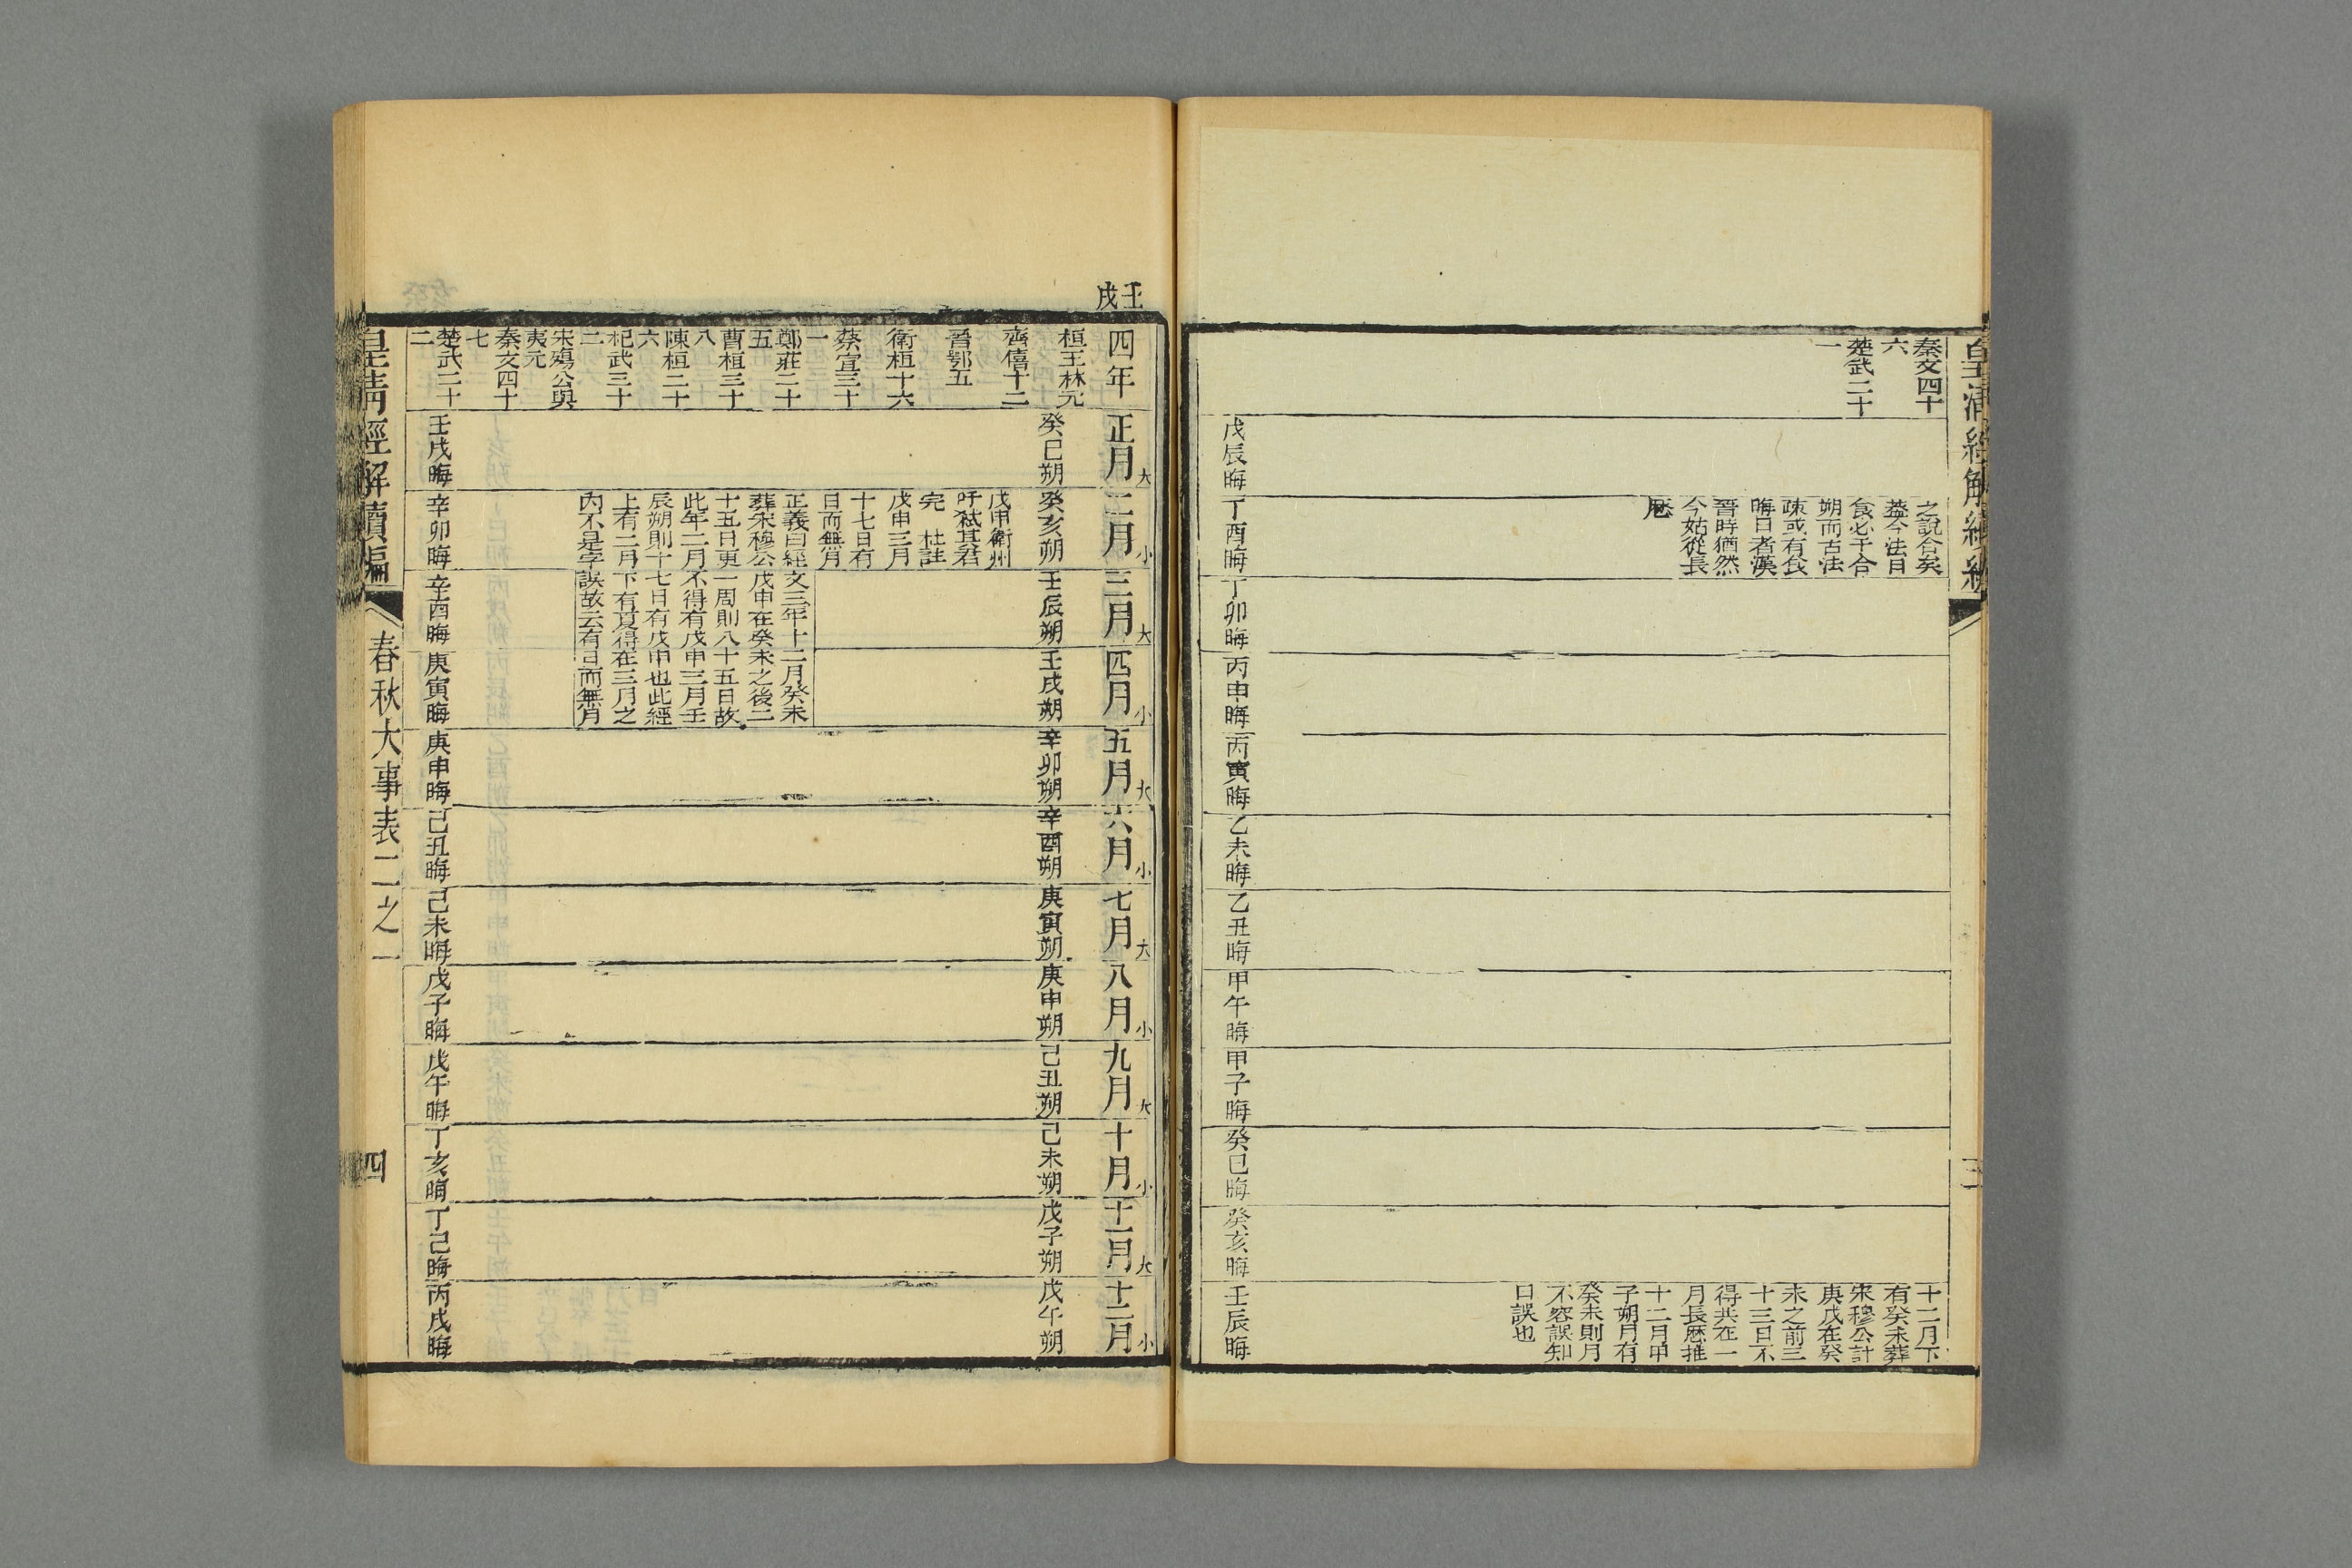 皇清經解續編
三
秦文四十
六
楚武二十
一
戊辰晦
之說合矣
葢今法日
食必于合
朔而古法
疎或有食
晦日者漢
晉時猶然
今姑從長
厯
丁酉晦
丁卯晦
丙申晦
丙寅晦
乙未晦
乙丑晦
甲午晦
甲子晦
癸巳晦
癸亥晦
十二月下
有癸未葬
宋穆公計
庚戌在癸
未之前三
十三日不
得共在一
月長厯推
十二月甲
子朔月有
癸未則月
不容誤知
日誤也
壬辰晦
壬戌
四年
桓王林元
齊僖十二
晉鄂五
衛桓十六
蔡宣三十
一
鄭莊二十
五
曹桓三十
八
陳桓二十
六
杞武三十
二
宋殤公與
夷元
秦文四十
七
楚武二十
二
正月大
癸巳朔
壬戌晦
二月小
癸亥朔
戊申衛州
吁弒其君
完 杜註
戊申三月
十七日有
日而無月
正義曰經文三年十二月癸未
葬宋穆公戊申在癸未之後二
十五日更一周則八十五日故
此年二月不得有戊申三月壬
辰朔則十七日有戊申也此經
上有二月下有夏得在三月之
內不是字誤故云有日而無月
辛卯晦
三月大
壬辰朔
辛酉晦
四月小
壬戌朔
庚寅晦
五月大
辛卯朔
庚申晦
六月小
辛酉朔
己丑晦
七月大
庚寅朔
己未晦
八月小
庚申朔
戊子晦
九月大
己丑朔
戊午晦
十月小
己未朔
丁亥晦
十一月大
戊子朔
丁巳晦
十二月小
戊午朔
丙戌晦
皇清經解續編
春秋大事表二之一
四